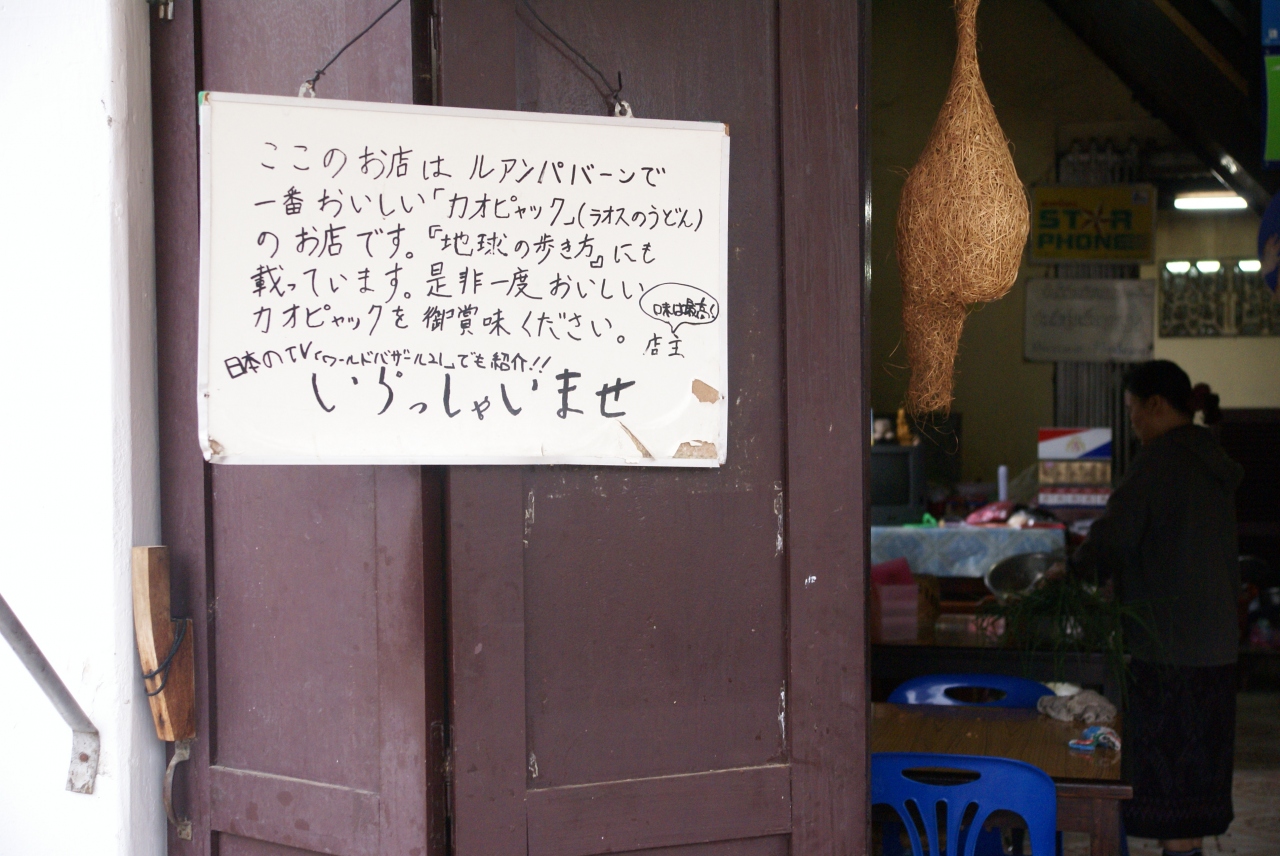 ここのお店は ルアンパバーンで
一番おいしい「カオピャック」(ラオスのうどん)
のお店です。『地球の歩き方』にも
載っています。是非一度おいしい
カオピャックを御賞味ください。
味は最高
店主
日本のTV「ワールドバザール21」でも紹介!!
いらっしゃいませ
STAR
PHONE